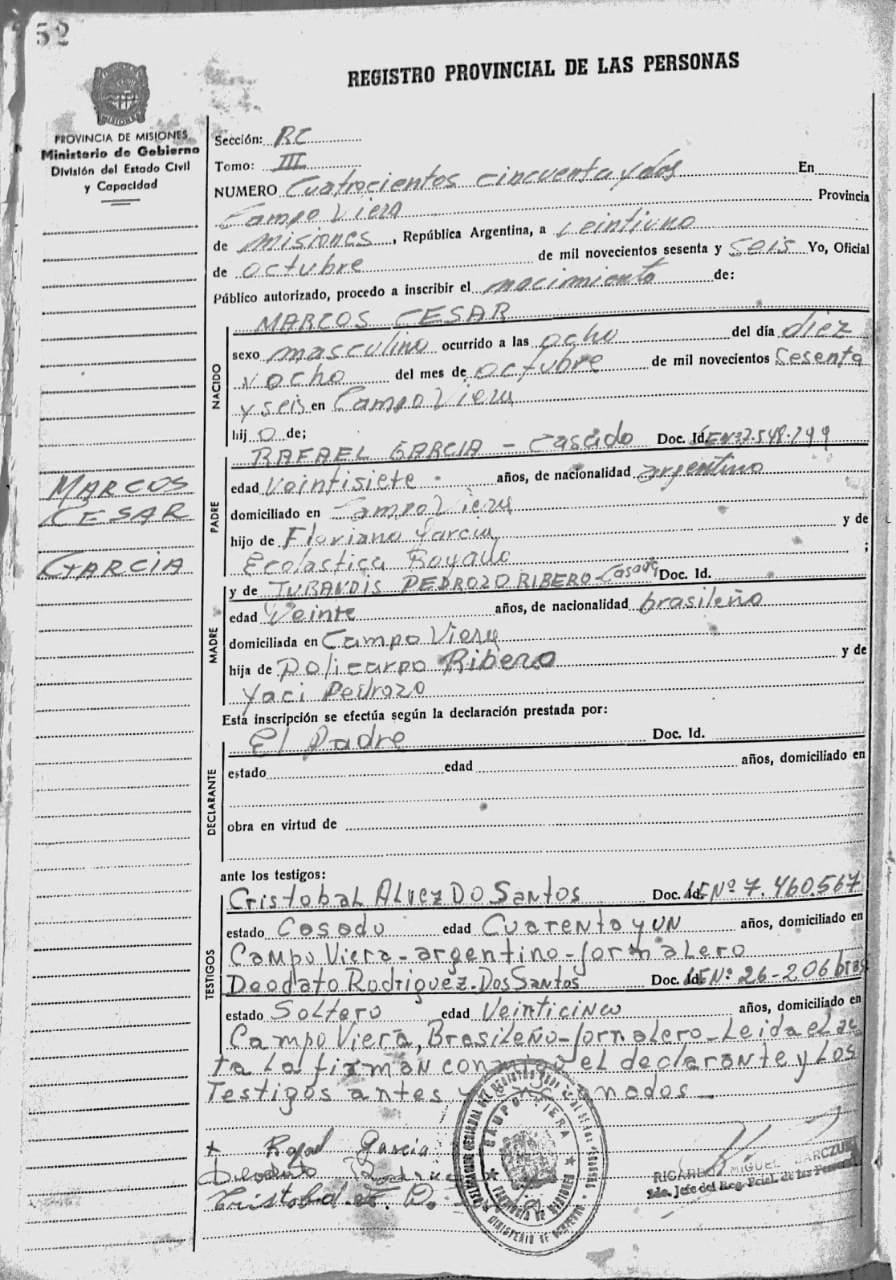 52
REGISTRO PROVINCIAL DE LAS PERSONAS
PROVINCIA DE MISIONES
Ministerio de Gobierno
División del Estado Civil
y Capacidad
Sección: RC
Tomo: III
NUMERO Cuatrocientos cincuenta y dos En
Campo Viera Provincia
de Misiones, República Argentina, a veintiuno
de octubre de mil novecientos sesenta y seis Yo, Oficial
Público autorizado, procedo a inscribir el nacimiento de:
NACIDO
MARCOS CESAR
sexo masculino ocurrido a las ocho del día diez
y ocho del mes de octubre de mil novecientos sesenta
y seis en Campo Viera
hijo de;
PADRE
RAFAEL GARCIA - casado Doc. Id.
edad Veintisiete años, de nacionalidad argentino
domiciliado en Campo Viera
hijo de Floriano Garcia y de
Ecolastica Boyado ;
MARCOS
CESAR
GARCIA
MADRE
y de JURANDIS PEDROZO RIBERO - Casada Doc. Id.
edad Veinte años, de nacionalidad brasileño
domiciliada en Campo Viera
hija de Policarpo Ribero y de
Yaci Pedrozo
Esta inscripción se efectúa según la declaración prestada por:
DECLARANTE
El Padre Doc. Id.
estado edad años, domiciliado en
obra en virtud de
ante los testigos:
TESTIGOS
Cristobal Alvez Do Santos Doc. Id. LE Nº 7.460.567
estado Casado edad Cuarenta y un años, domiciliado en
Campo Viera - argentino - jornalero
Deodato Rodriguez Dos Santos Doc. Id. Nº 26-206 bras
estado Soltero edad Veinticinco años, domiciliado en
Campo Viera, Brasileño - jornalero - Leida el ac
ta la firman conmigo el declarante y los
Testigos antes nados
Rafael Garcia
Deodato
Cristobal
CAMPO VIERA
PROVINCIA DE MISIONES
MINISTERIO DE GOBIERNO
RICARDO MIGUEL
Jefe del Reg. Pcial. de las Personas